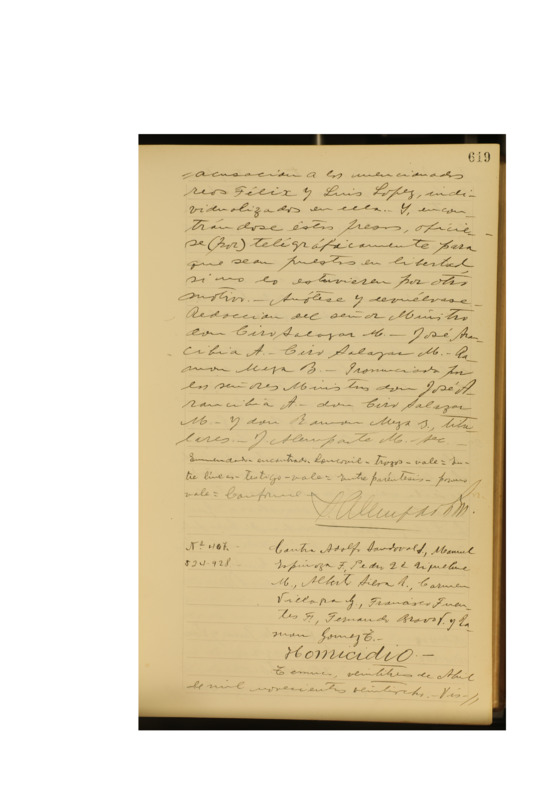 619
=acusación a los mencionados
reos Félix y Luis Lopez, indi-
vidualizados en ella.. Y, encon-
trándose éstos presos, ofície-
se (por) telégráficamente para
que sean puestos en libertad
si no lo estuvieren por otro
motivo.- Anótese y devuélvase.-
Redaccion del señor Ministro
don Ciro Salazar M.- José Aran-
cibia A.- Ciro Salazar M.- Ra-
mon Meza B- Pronunciada por
los señores Ministros don José A-
rancibia A- don Ciro Salazar
M- Y don Ramon Meza B, titu-
lares.- J. Alemparte M.- sec
Enmendados encontrados - trozos - vale= En-
tre lineas- testigo- vale= Entre paréntesis- por no
vale= Conforme.-
Contra Adolfo Sandoval S, Manuel
Espinoza F, Pedro 2º Riquelme
M., Alberto Silva R., Carmen
Francisco Fuen-
tes F, Fernando Bravo V. y Ra-
mon Gomez T.-
Homicidio.-
Temuco, veintitres de Abril
de mil novecientos veintiocho.- Vis-//